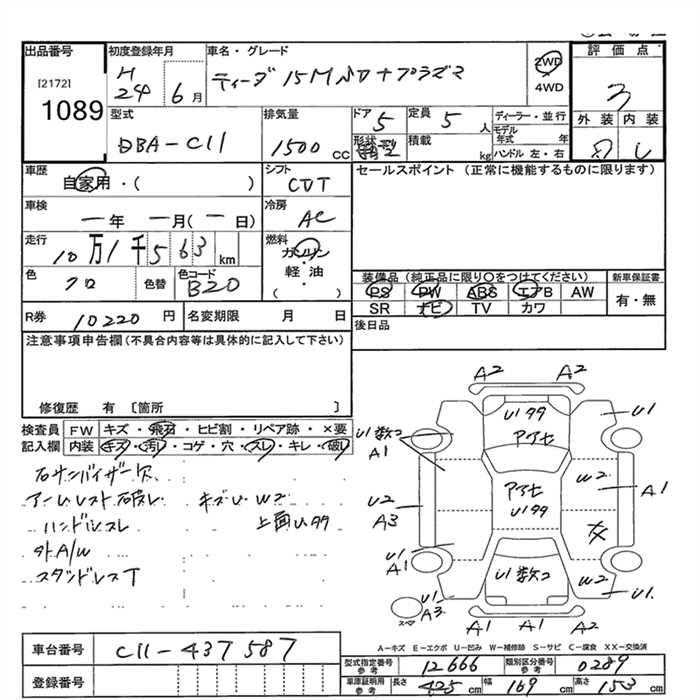 出品番号 初度登録年月 車名・グレード 評価点
[2172] H 24 6月 ティーダ 15M 2WD 4WD 3
1089 型式 排気量 ドア 5 定員 5人 ディーラー・並行 外装 内装
DBA-C11 1500cc 形状 積載 kg モデル年式 年 ハンドル 左・右
車歴 自家用・( ) シフト CVT セールスポイント (正常に機能するものに限ります)
車検 ー年 ー月(ー日) 冷房 AC
走行 10万1千563km 燃料 ガソリン・軽油・( )
色 クロ 色替 色コード B20 装備品 (純正品に限り○をつけてください) 新車保証書
PS PW ABS エアB AW 有・無
SR ナビ TV カワ
R券 10220円 名変期限 月 日 後日品
注意事項申告欄(不具合内容等は具体的に記入して下さい)
修復歴 有 [箇所 ]
検査員 FW キズ・飛石・ヒビ割・リペア跡・×要
記入欄 内装 キズ・汚レ・コゲ・穴・スレ・キレ・破レ
右サンバイザー欠
アームレスト破レ キズU W2
ハンドルスレ 上面U99
外A/W
スタッドレスT
A2 A2
U1 99 U1
アクセ
U1数コ A1
アクセ W2 A1
U1 99
U2 A3
U1 A1
U1数コ W2 U1
U1 A3
スペア
A1 A1 A2
車台番号 C11-437587
登録番号
A-キズ E-エクボ U-凹み W-補修跡 S-サビ C-腐食 XX-交換済
型式指定番号 参考 12666 類別区分番号 参考 0289
車庫証明用 参考 長さ 425cm 幅 169cm 高さ 153cm